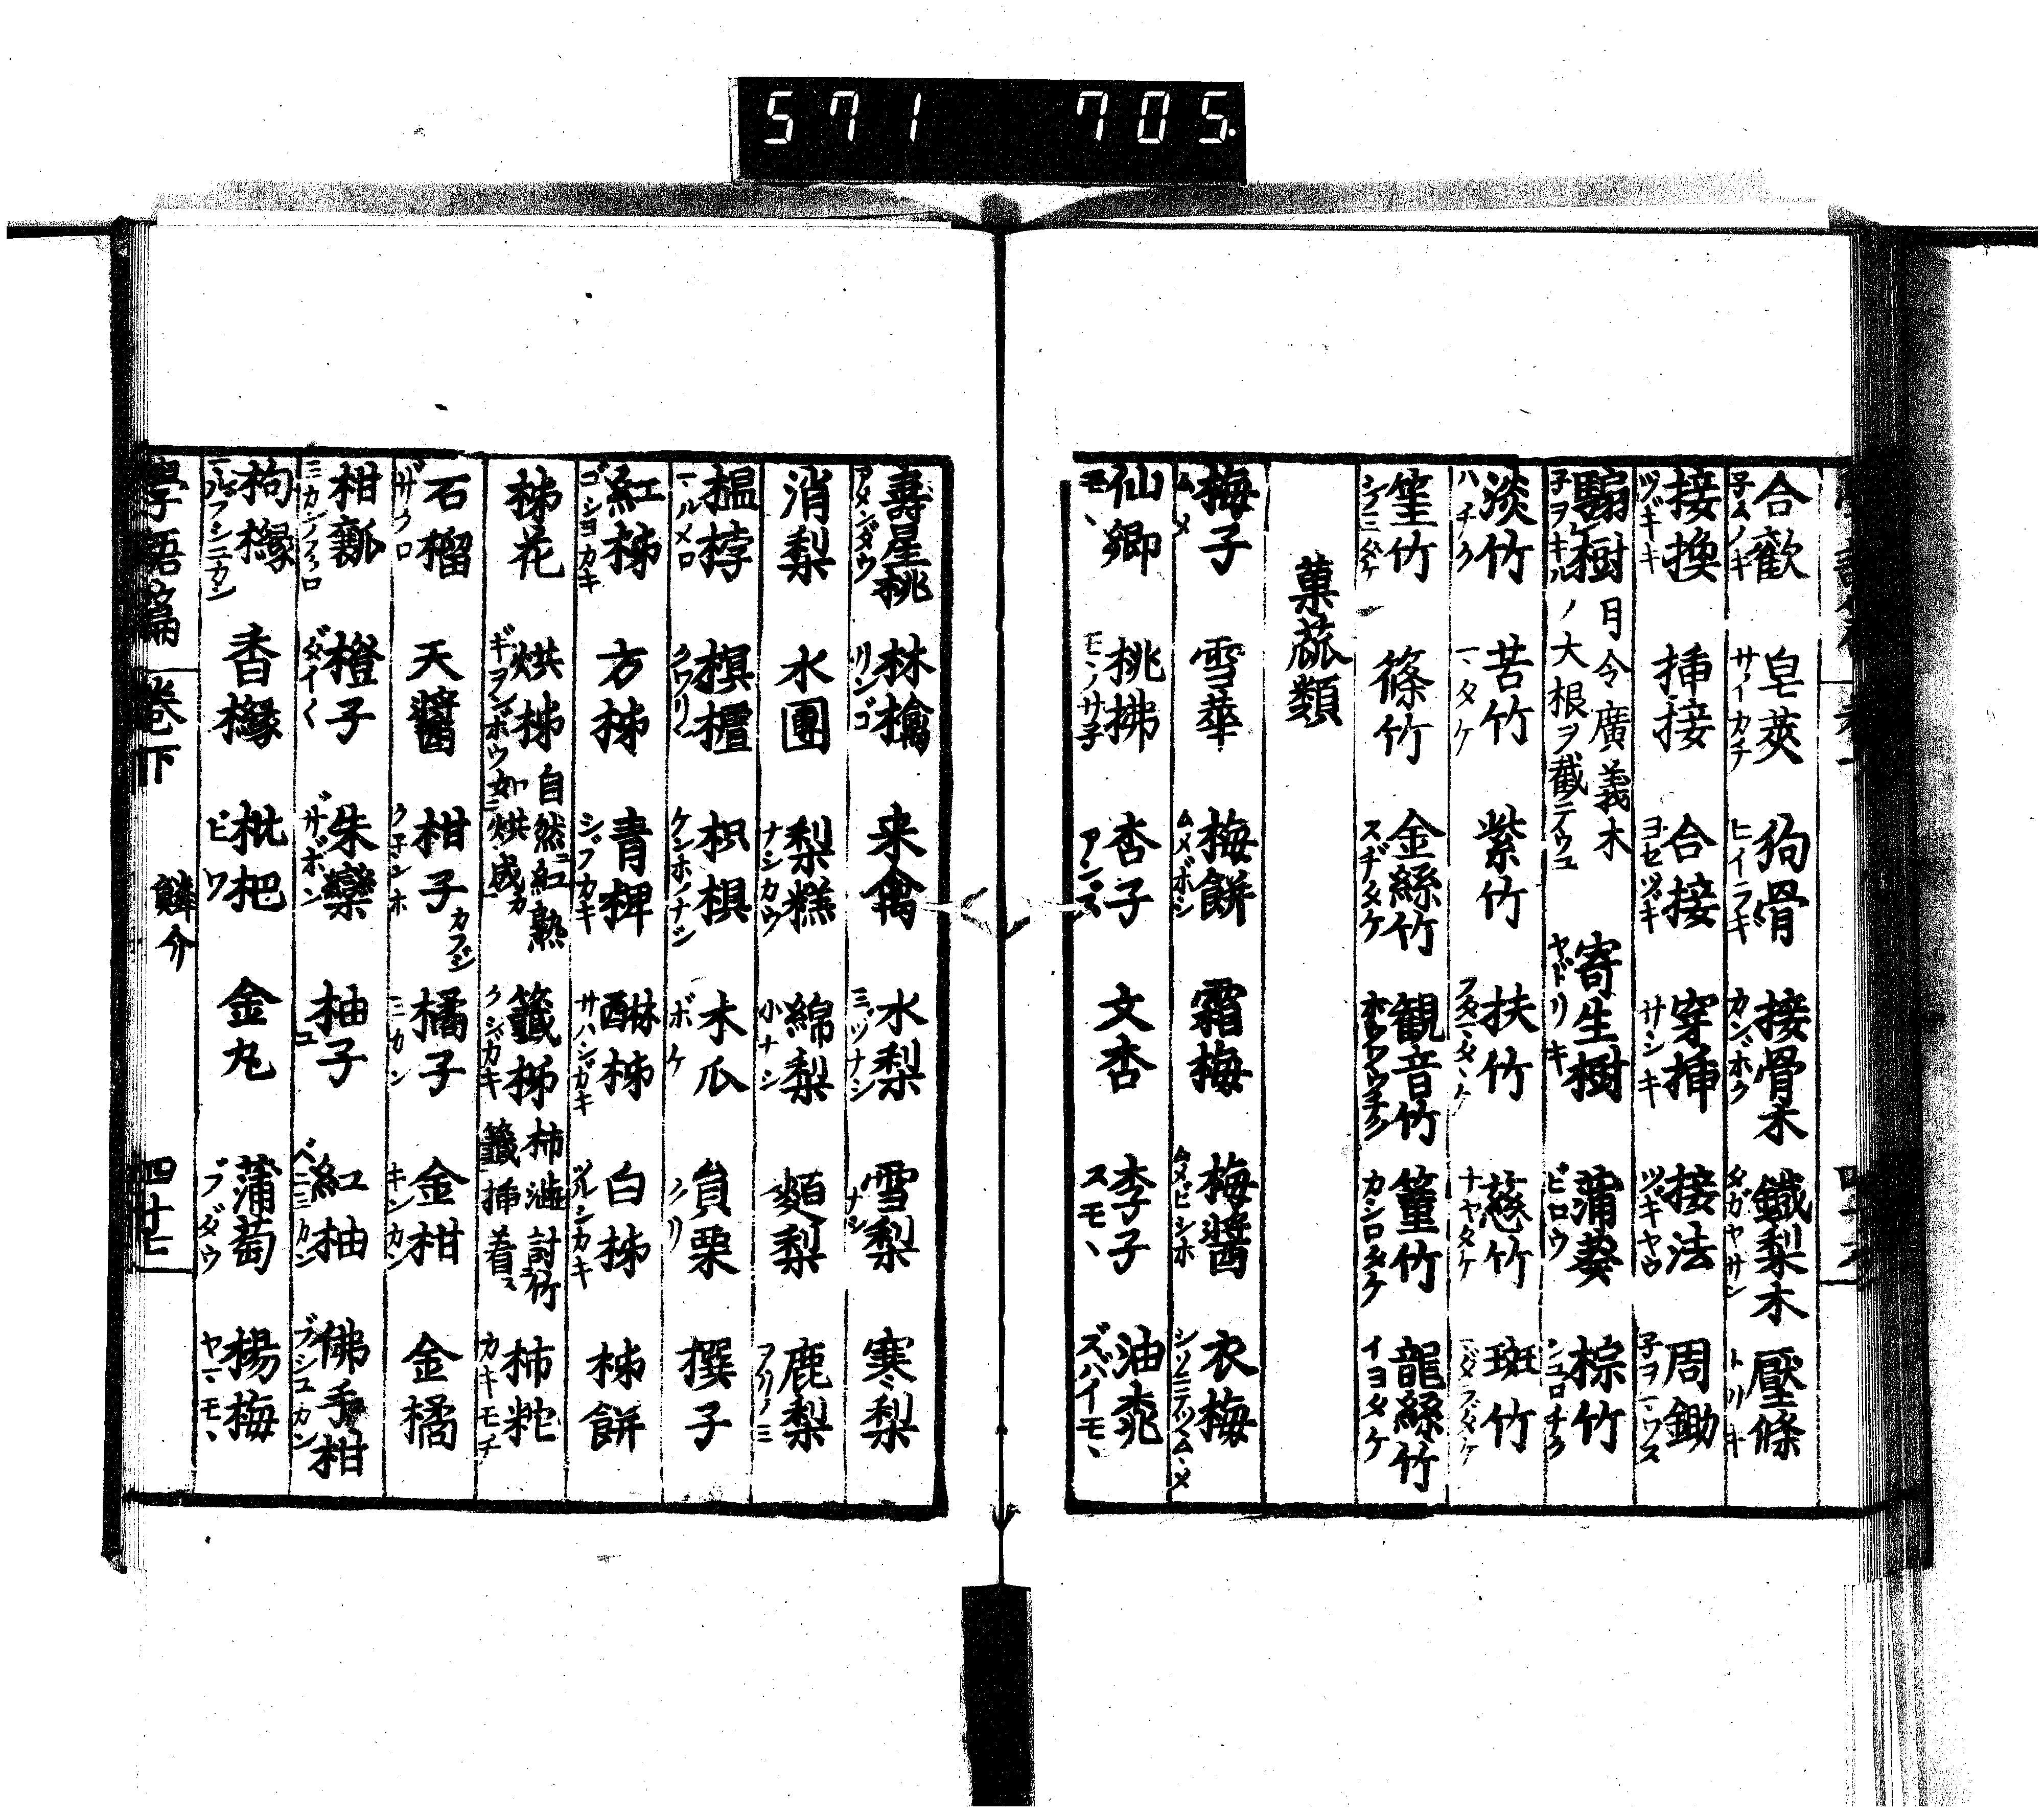 571 705.
合歡 子ムノキ 皂莢 サイカチ 狗骨 ヒイラキ 接骨木 鐵梨木 タガヤサン 壓條 トリキ
接換 ツギキ 挿接 合接 ヨセツギキ 穿挿 サシキ 接法 ツギヤウ 周鋤 子ヲマワス
騸樹 子ヲキル 月令廣義木ノ大根ヲ截テウユ 寄生樹 ヤドリキ 蒲葵 ビロウ 棕竹 シユロチク
淡竹 ハチク 苦竹 マタケ 紫竹 扶竹 フタマタタケ 慈竹 斑竹 マダラタケ
篁竹 篠竹 金絲竹 スヂタケ 観音竹 篁竹 カシロタケ 龍絲竹 イヨタケ
菓蓏類
梅子 ムメ 雪華 梅餅 ムメボシ 霜梅 梅醬 ムメビシホ 衣梅
仙卿 モヽ 桃拂 モヽノサ子 杏子 アンズ 文杏 李子 スモヽ 油桃 ズバイモヽ
壽星桃 アメンダウ 林檎 リンゴ 来禽 水梨 ミヅナシ 雪梨 ナシ 寒梨
消梨 水團 梨糕 ナシカウ 綿梨 小ナシ 麪梨 鹿梨 アリノミ
榲桲 マルメロ 榠樝 クワリン 枳椇 ケンホノナシ 木瓜 ボケ 員栗 クリ 撰子
紅柹 ゴシヨカキ 方柹 青椑 シブカキ 醂柹 サハシガキ 白柹 ツルシカキ 柹餅
柹花 烘柹 自然紅熟如烘成 籤柹 クシガキ 柿漉討竹籤挿着 柿粆 カキモチ
石榴 ザクロ 天醬 柑子 カブシ 橘子 ミカン 金柑 キンカン 金橘
柑瓤 ミカンノフクロ 橙子 ダイ〱 朱欒 ザボン 柚子 ユ 紅柚 ベニミカン 佛手柑 ブシユカン
枸櫞 マルブシユカン 香櫞 枇杷 ビワ 金丸 蒲萄 ブダウ 楊梅 ヤマモヽ
學語篇 卷下 鱗介 四十七